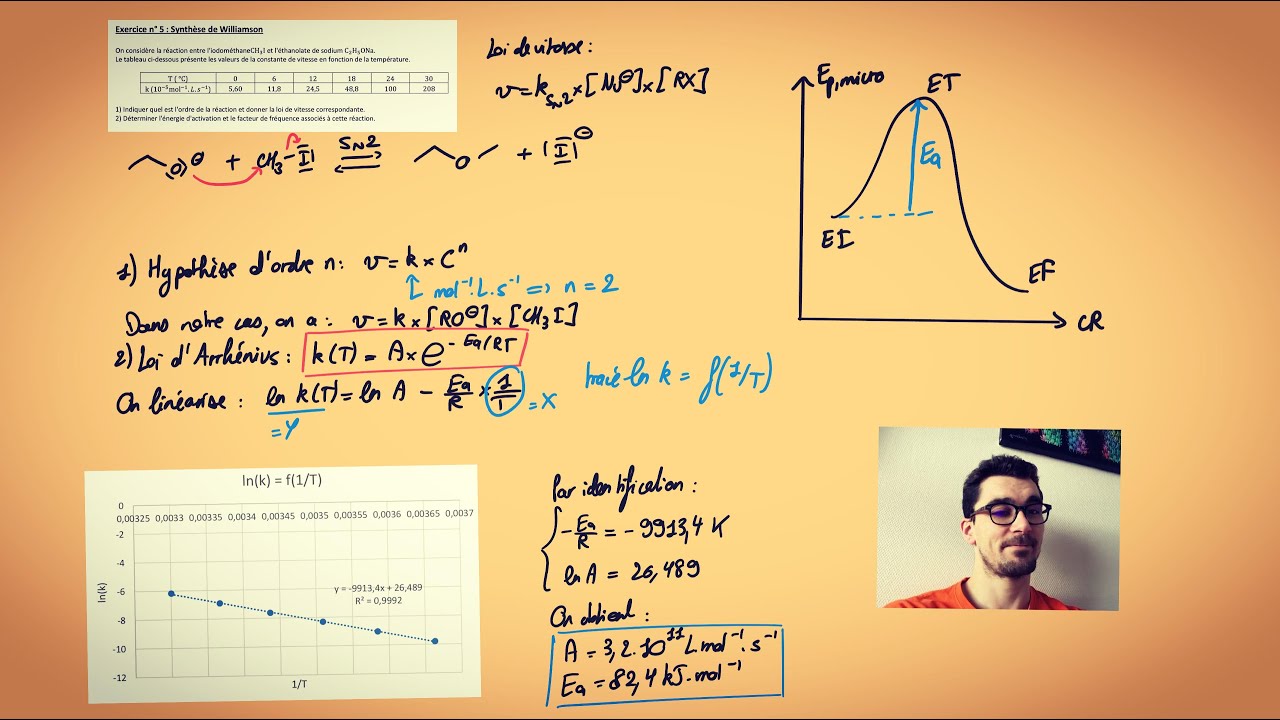 Exercice n° 5 : Synthèse de Williamson
On considère la réaction entre l'iodométhaneCH₃I et l'éthanolate de sodium C₂H₅ONa.
Le tableau ci-dessous présente les valeurs de la constante de vitesse en fonction de la température.
T (°C) 0 6 12 18 24 30
k (10⁻⁵mol⁻¹.L.s⁻¹) 5,60 11,8 24,5 48,8 100 208
1) Indiquer quel est l'ordre de la réaction et donner la loi de vitesse correspondante.
2) Déterminer l'énergie d'activation et le facteur de fréquence associés à cette réaction.
Loi de vitesse :
v = k_SN2 × [Nu⊖] × [RX]
O⊖ + CH₃-I SN2 O + |I|⊖
Ep,micro
ET
Ea
EI
EF
CR
1) Hypothèse d'ordre n : v = k × Cⁿ
mol⁻¹.L.s⁻¹ => n = 2
Dans notre cas, on a : v = k × [RO⊖] × [CH₃I]
2) Loi d'Arrhénius : k(T) = A × e^(-Ea/RT)
On linéarise : ln k(T) = ln A - Ea/R × 1/T = X
= Y
tracé ln k = f(1/T)
ln(k) = f(1/T)
0
0,00325 0,0033 0,00335 0,0034 0,00345 0,0035 0,00355 0,0036 0,00365 0,0037
-2
-4
-6
-8
-10
-12
ln(k)
y = -9913,4x + 26,489
R² = 0,9992
1/T
Par identification :
-Ea/R = -9913,4 K
ln A = 26,489
On obtient :
A = 3,2.10¹¹ L.mol⁻¹.s⁻¹
Ea = 82,4 kJ.mol⁻¹